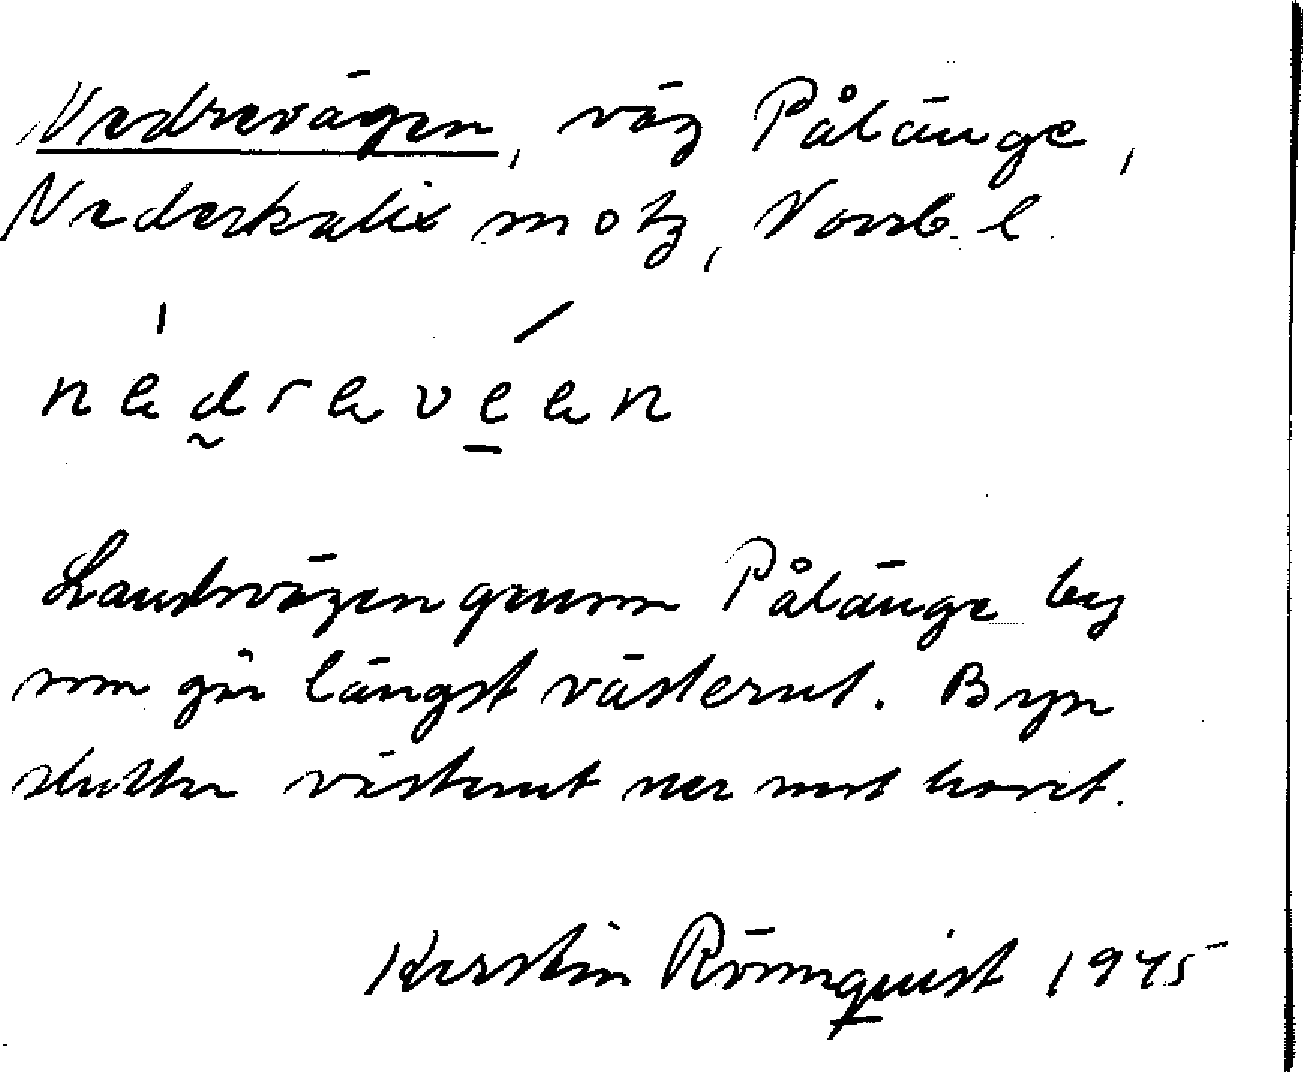 Nedrevägen, väg Pålänge,
Nederkalix sn o tg, Norrb. l.
nedravean
Landsvägen genom Pålänge by
som går längst västerut. Byn
sluttar västerut ner mot havet.
Kerstin Rönnquist 1945